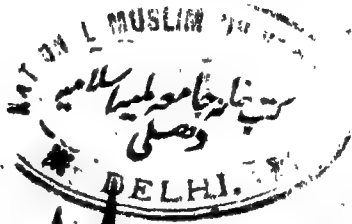 NATIONAL MUSLIM
کتب خانہ جامعہ ملیہ اسلامیہ
دھلی
DELHI.